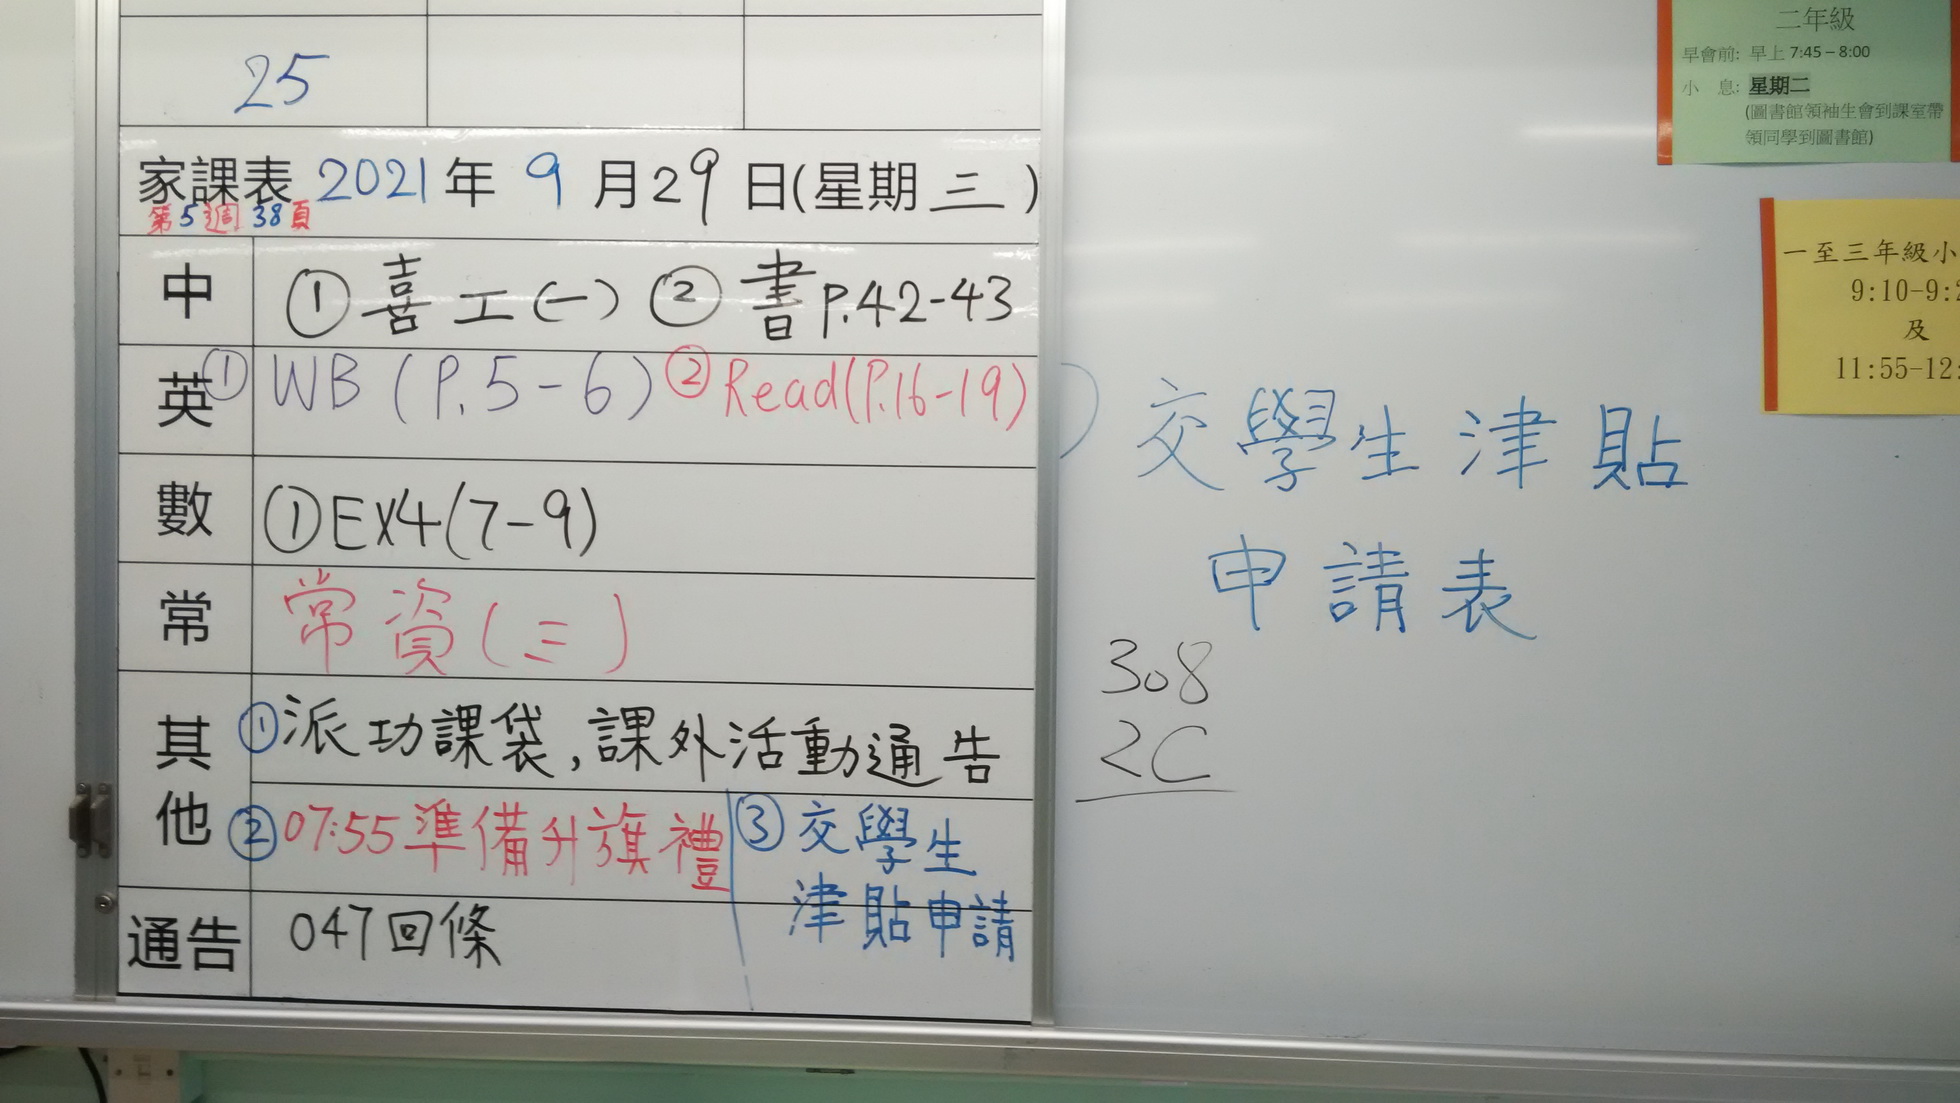 25
家課表 2021年 9月29日(星期三)
第5週 38頁
中 ①喜工(一) ②書P.42-43
英 ①WB(P.5-6) ②Read(P.16-19)
數 ①EX4(7-9)
常 常資(三)
其他 ①派功課袋,課外活動通告
②07:55準備升旗禮
③交學生
津貼申請
通告 047回條
交學生津貼
申請表
308
2C
二年級
早會前: 早上 7:45 – 8:00
小 息: 星期二
(圖書館領袖生會到課室帶
領同學到圖書館)
一至三年級小
9:10-9:2
及
11:55-12: